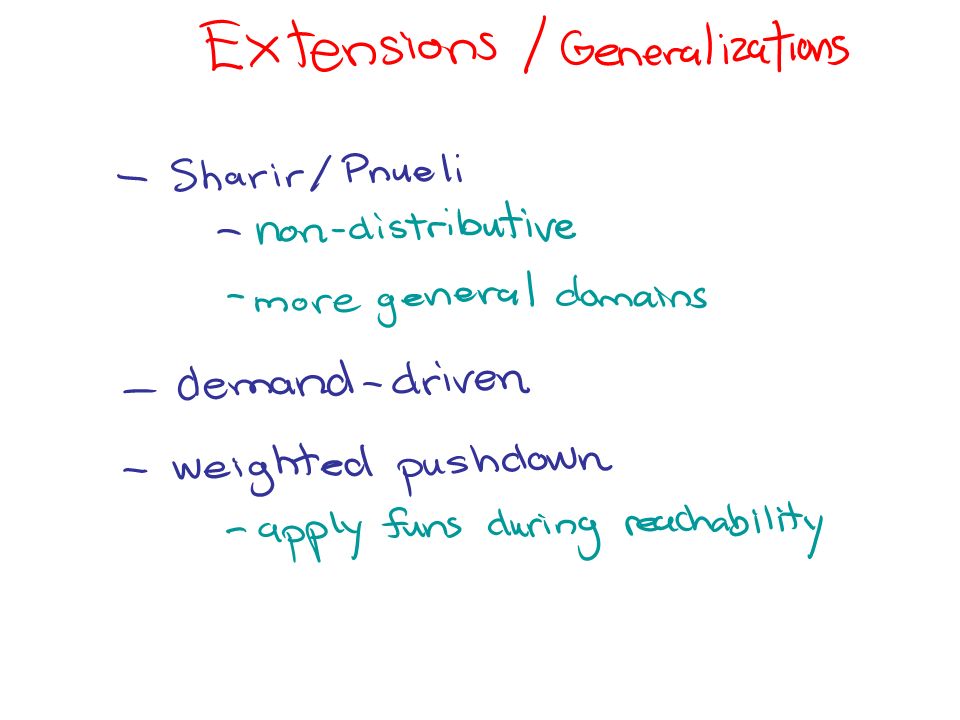 Extensions / Generalizations
- Sharir/Pnueli
- non-distributive
- more general domains
- demand-driven
- weighted pushdown
- apply funs during reachability